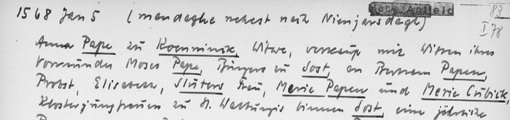 1568 Jan 5 (mandaghs nehest nach Niemjarsdagh)
Stadt Anfeld 83
I 78
Anna Pape zu Koerninck, Witwe, verkauft mit Witsen ihres
Vormundes Moses Pape, Bürgers zu Sost, an Bertram Papen,
Probst, Elisabeth, Sluters Frau, Maria Papen und Maria Cubick,
Klosterjungfrauen zu St. Walburgis binnen Sost, eine jährliche